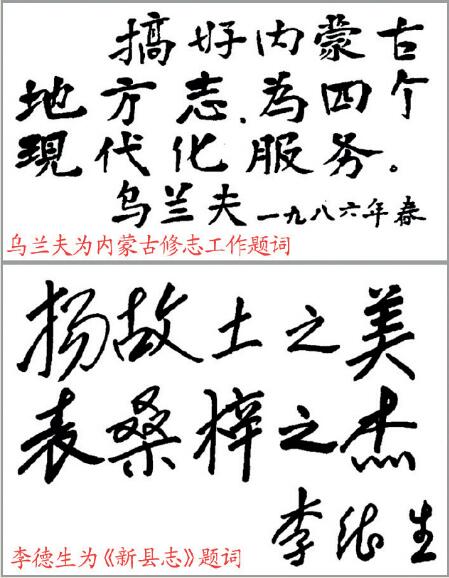 搞好内蒙古
地方志、为四个
現代化服务。
乌兰夫 一九八六年春
乌兰夫为内蒙古修志工作题词
扬故土之美
表桑梓之杰
李德生
李德生为《新县志》题词